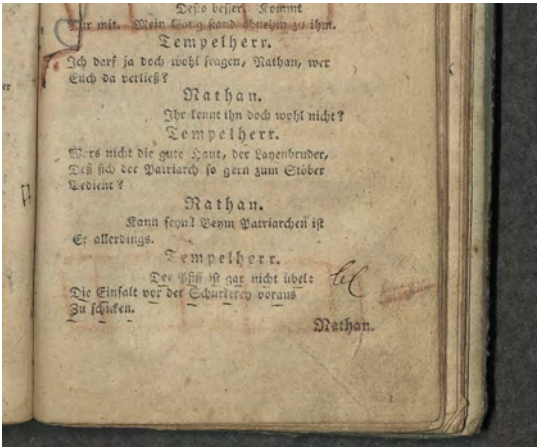 Desto besser. Kommt
Nur mit. Mein Weg stand ohnehin zu ihm.
Tempelherr.
Ich darf ja doch wohl fragen, Nathan, wer
Euch da verließ?
Nathan.
Ihr kennt ihn doch wohl nicht?
Tempelherr.
Wars nicht die gute Haut, der Layenbruder,
Deß sich der Patriarch so gern zum Stöber
Bedient?
Nathan.
Kann seyn! Beym Patriarchen ist
Er allerdings.
Tempelherr.
Der Pfiff ist gar nicht übel:
Die Einfalt vor der Schurkerey voraus
Zu schicken.
Nathan.